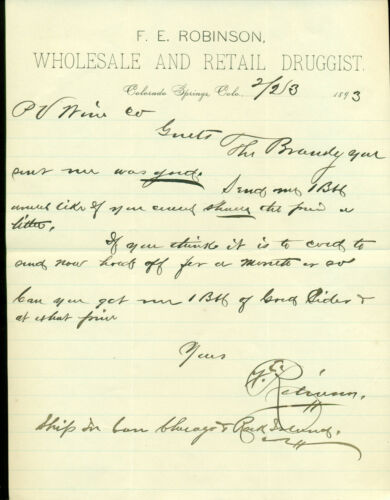 F. E. ROBINSON,
WHOLESALE AND RETAIL DRUGGIST.
Colorado Springs, Colo., 2/23 1893
P V Wine Co
Gents The Brandy you
sent me was good. Send me 1 Bbl
more like if you could shave the price a
little.
If you think it is to cold to
send now hold off for a month or so
Can you get me 1 Bbl of Good Cider &
at what price
Yours
F. E. Robinson.
Ship in care Chicago & Rock Island.